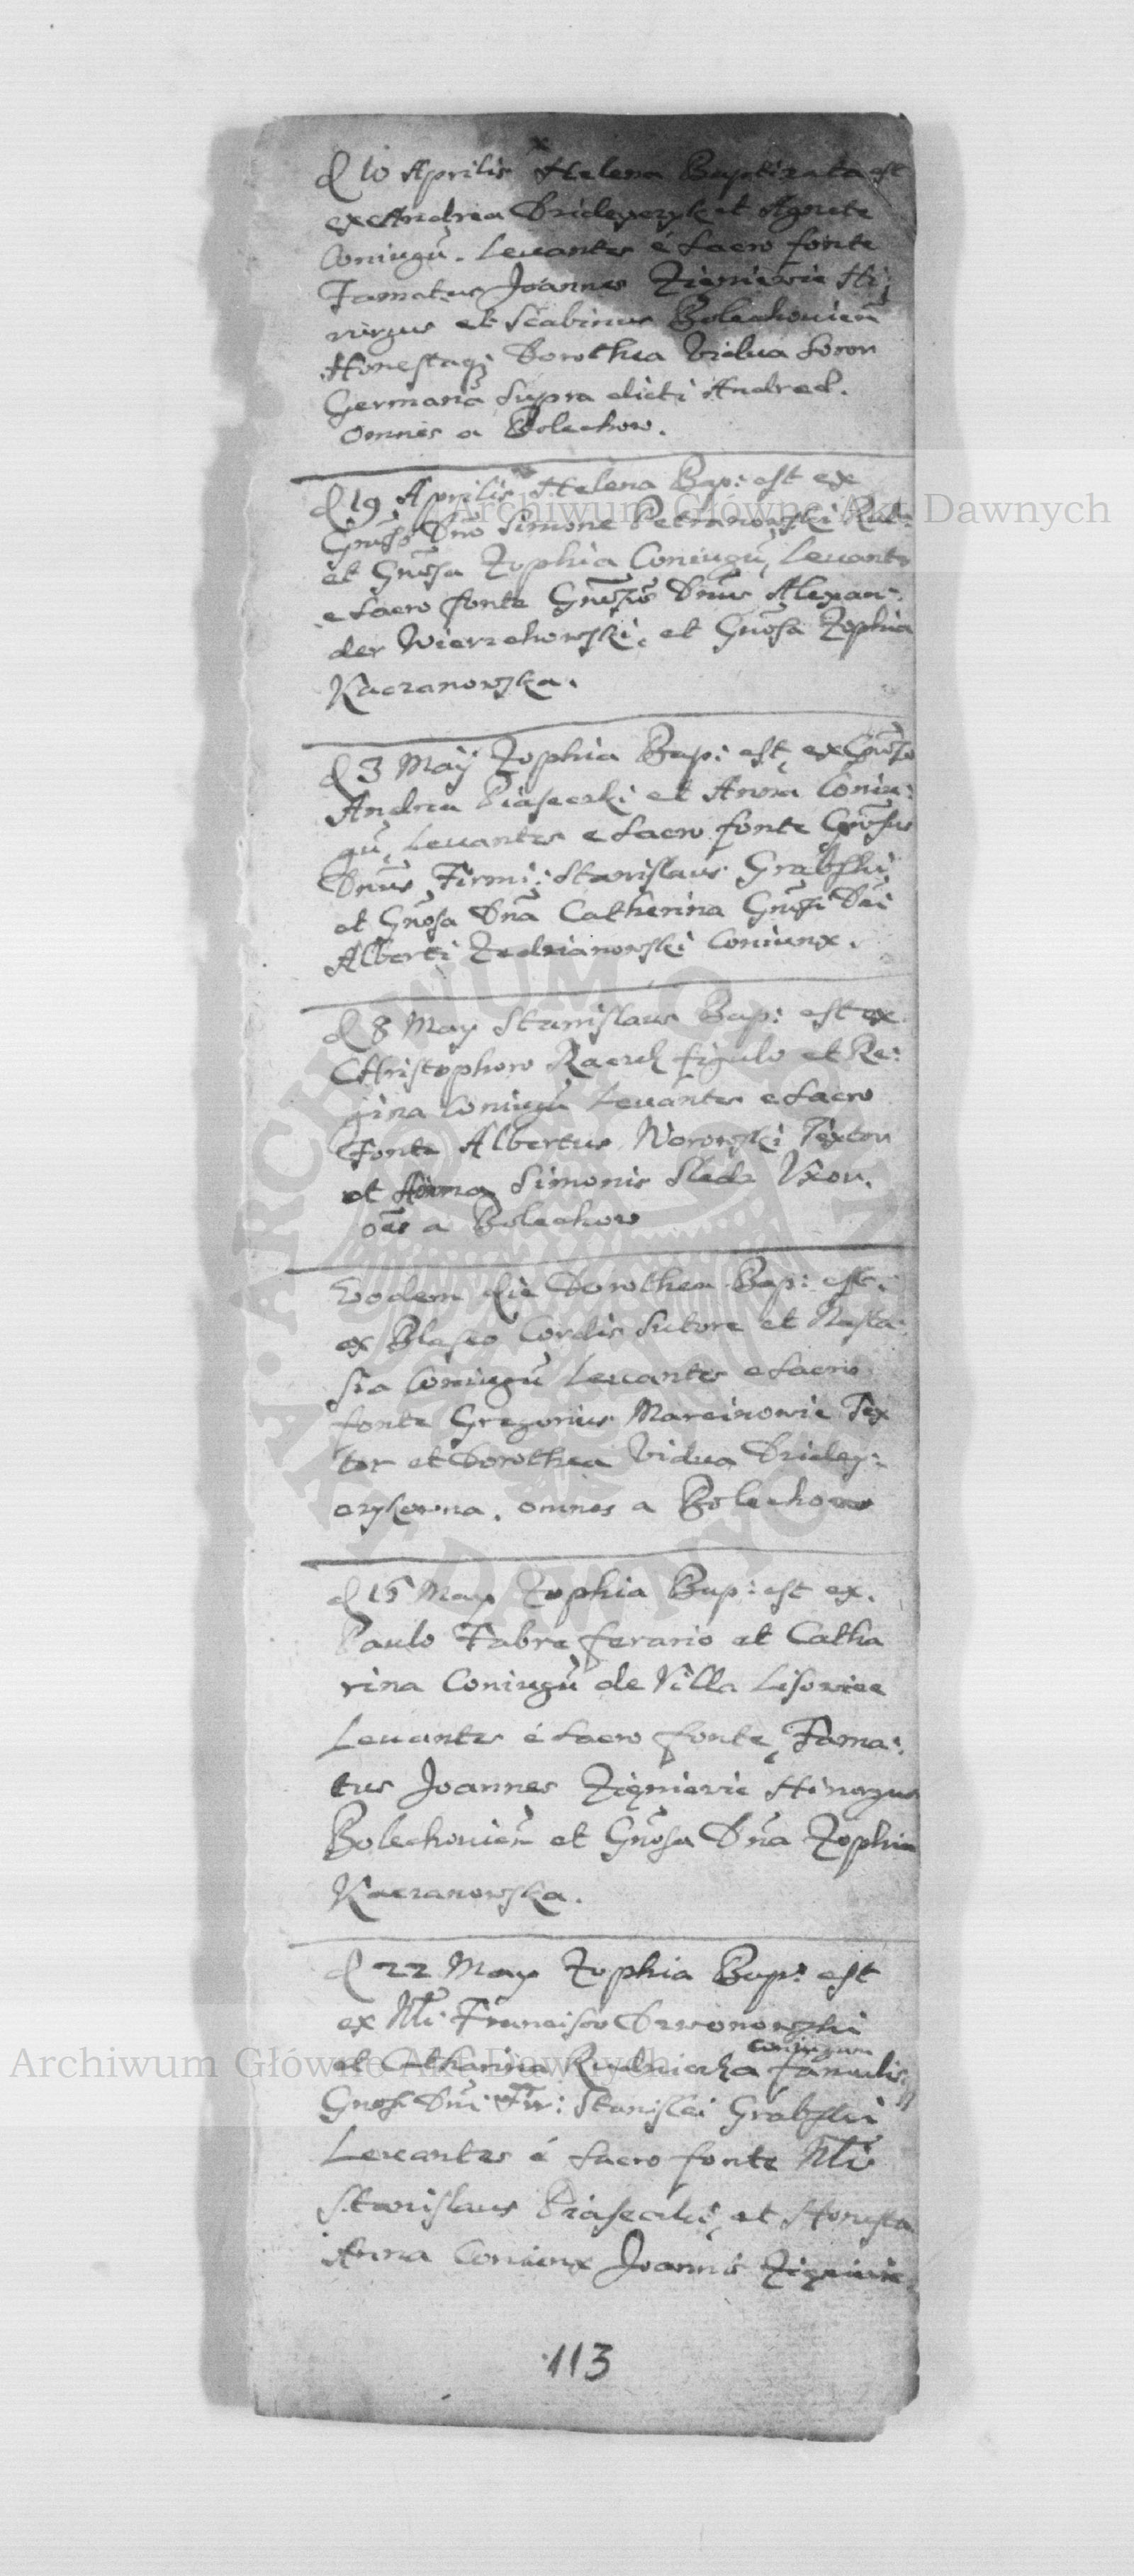 d 10 Aprilis Helena Baptizata est
ex Andrea Dzideyczyk et Agnete
Coniugū. Leuantes é Sacro fonte
Famatus Joannes Zięniewic Hi:
rurgus et Scabinus Bolechouień
Honestaq; Dorothea Vidua Soror
Germana Supra dicti Andreæ.
Omnes a Bolechow.
d 19 Aprilis Helena Bap: est ex
Gnoso Dno Simone Petranowski
et Gnosa Zophia Coniugū, Leuantes
e Sacro fonte Gnosus Dnus Alexan:
der Wierzchowski, et Gnosa Zophia
Kaczanowska.
d 3 May Zophia Bap: est, ex Gnoso
Andrea Piasecki et Anna Coniu:
gū, Leuantes e Sacro fonte Gnosus
Dnus Stanislaus Grabski
et Gnosa Dna Catherina Gnosi Dni
Alberti Zedzianowski Coniunx.
d 8 May Stanislaus Bap: est ex
Christophoro figulo et Re:
gina Coniugū Leuantes e Sacro
Fonte Albertus Worowski Textor
et Anna Simonis Sledz Vxor.
oēs a Bolechow
Eodem die Dorothea Bap: est.
ex Blaseo Cordis Sutore et Nasta:
sia Coniugū Leuantes e Sacro
fonte Gregorius Marcinowic Tex
tor et Dorothea Vidua Dzidey:
czykowna. omnes a Bolechow
d 15 May Zophia Bap: est ex.
Paulo Fabro ferario et Catha
rina Coniugū de Villa Lisowice
Leuantes é Sacro fonte, Fama:
tus Joannes Zięniewic Hirurgus
Bolechouień et Gnosa Dna Zophia
Kaczanowska.
d 22 May Zophia Bap: est
ex Nli Francisco Drwonowski
et Catharina Rudnicka coniugum famulis
Gnosi Dni Stanislai Grabski
Leuantes é Sacro fonte Nlis
Stanislaus Piasecki, et Honesta
Anna Coniunx Joannis Zięniewic
113
Archiwum Główne Akt Dawnych
Archiwum Główne Akt Dawnych
ARCHIWUM GŁÓWNE AKT DAWNYCH